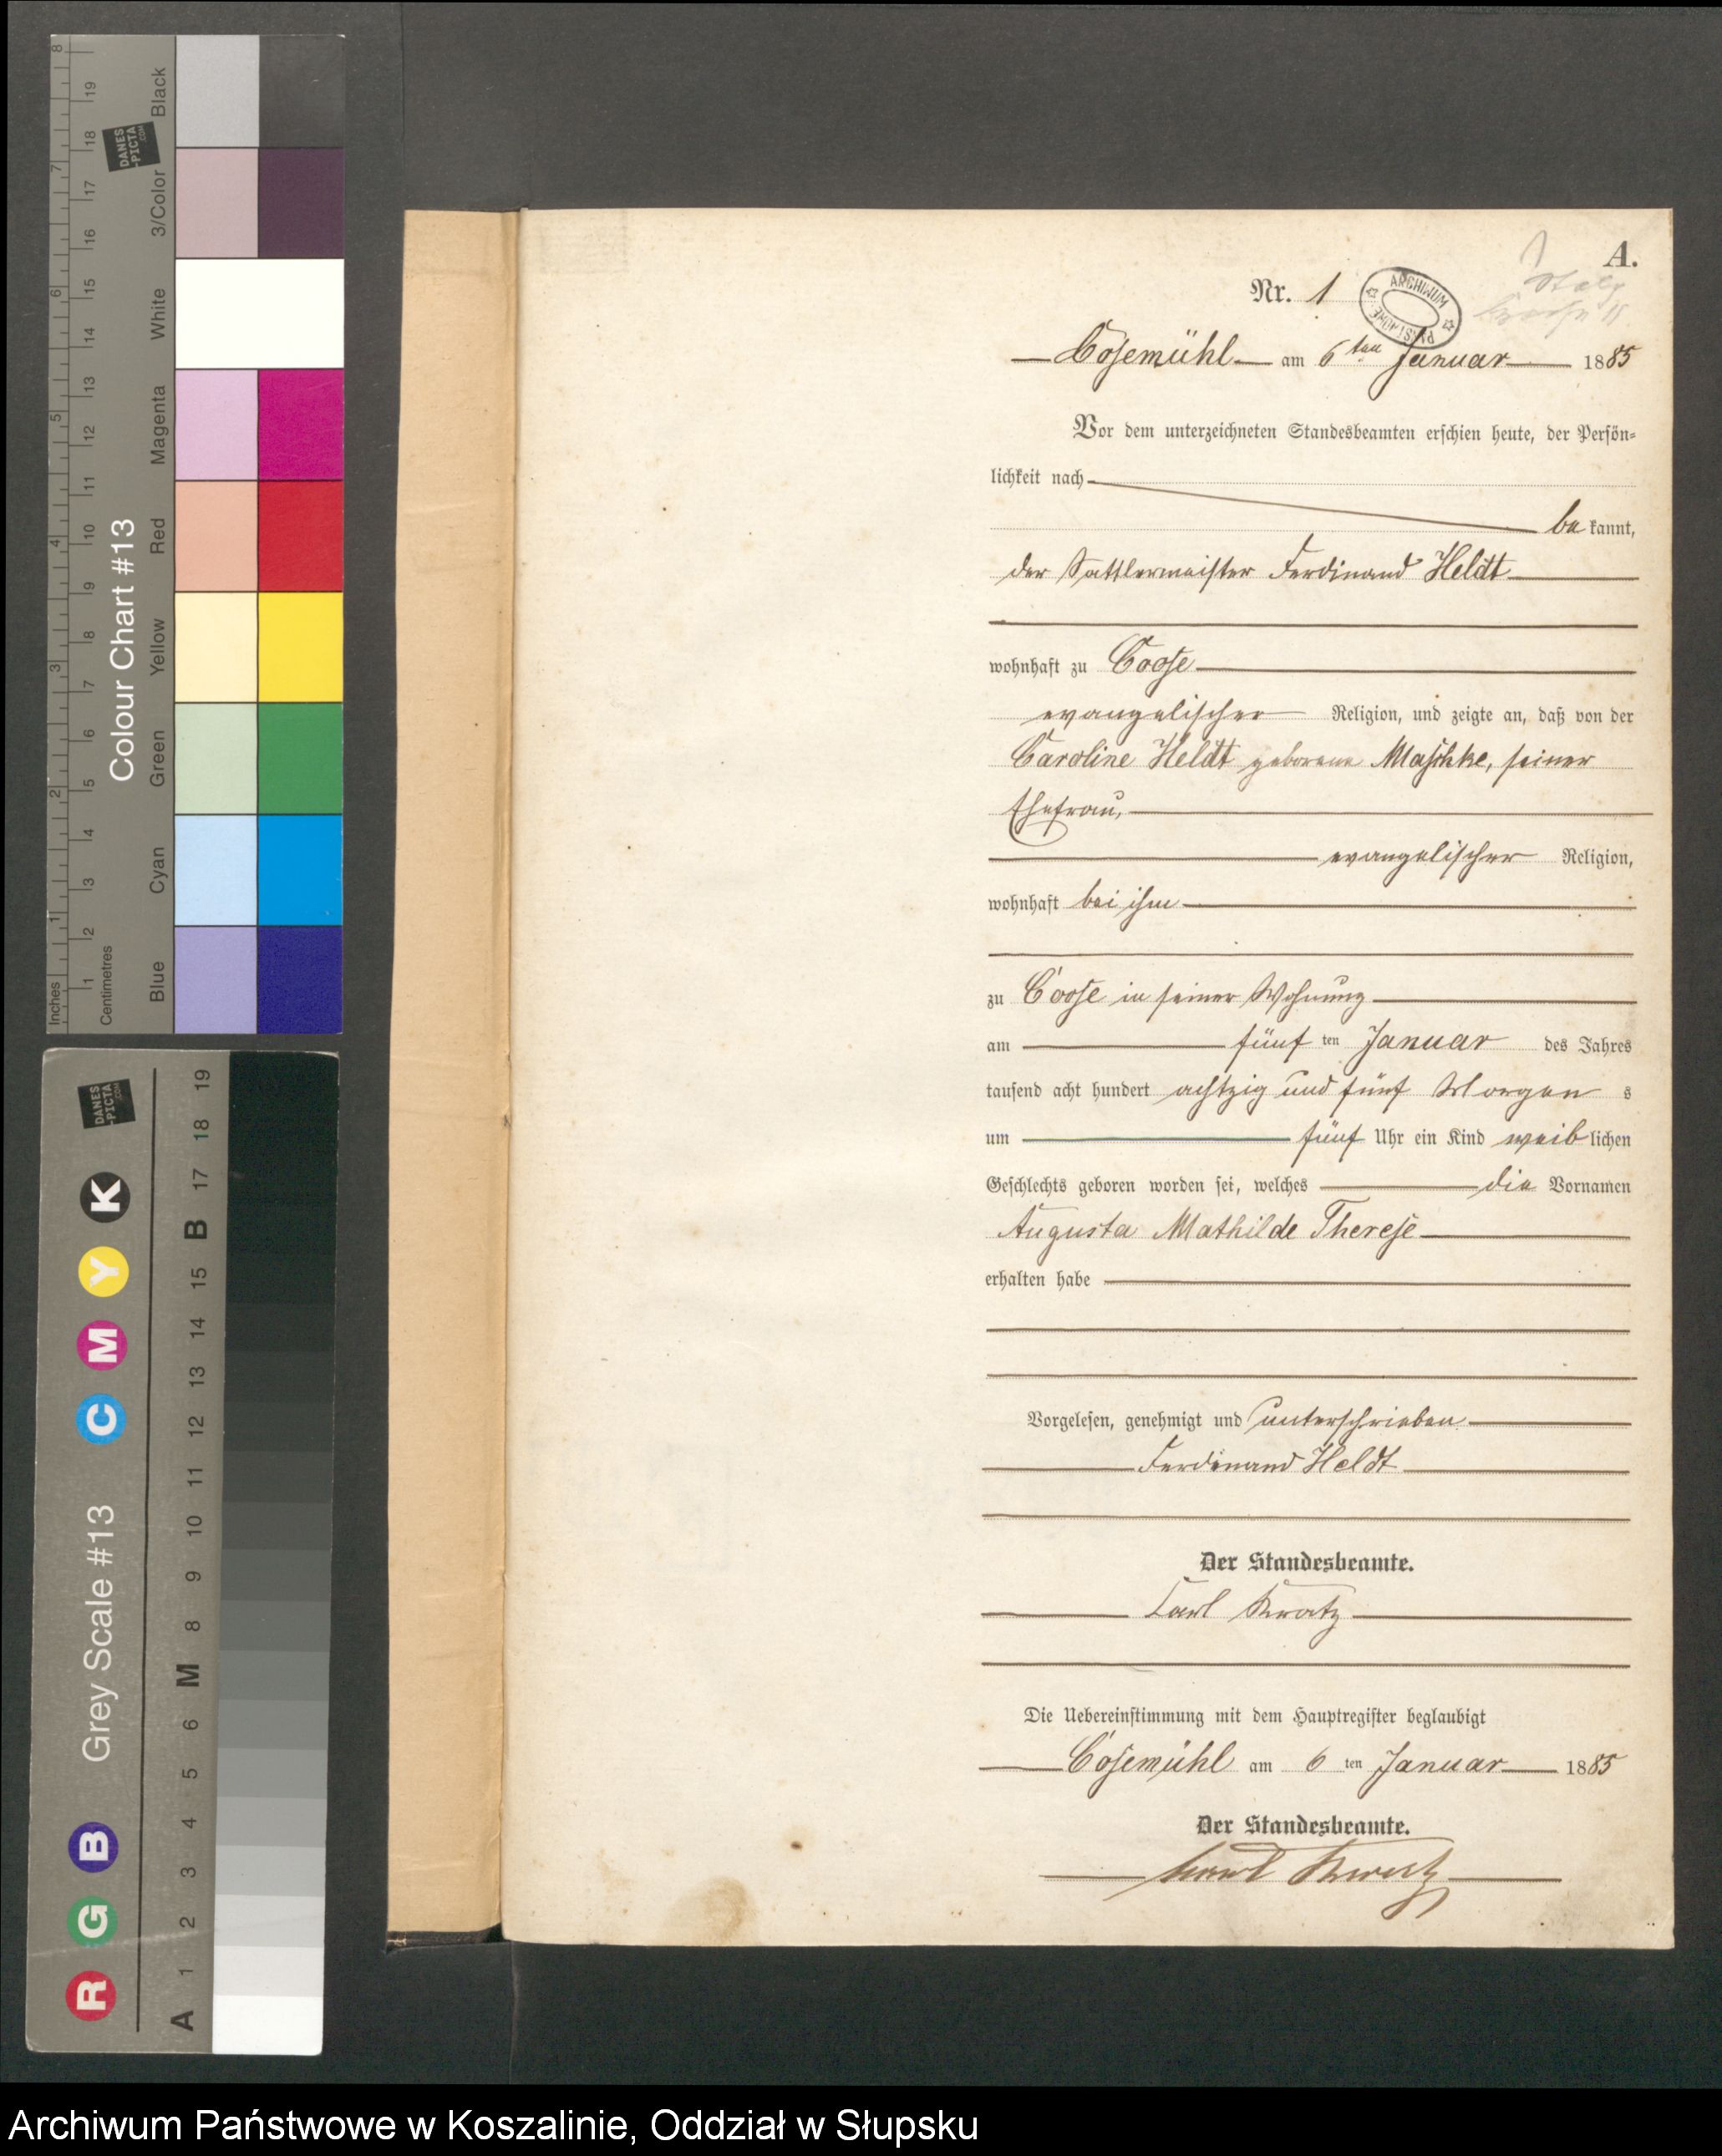 Black
3/Color
White
Magenta
Red
Yellow
Green
Cyan
Blue
Colour Chart #13
Inches
Centimetres
1 2 3 4 5 6 7 8
1 2 3 4 5 6 7 8 9 10 11 12 13 14 15 16 17 18 19
DANES
-PICTA
.COM
Grey Scale #13
R G B C M Y K
A 1 2 3 4 5 6 M 8 9 10 11 12 13 14 15 B 17 18 19
DANES
-PICTA
.COM
A.
Nr. 1
ARCHIWUM
Cosemühl am 6ten Januar 1885
Vor dem unterzeichneten Standesbeamten erschien heute, der Persön-
lichkeit nach
be kannt,
der Sattlermeister Ferdinand Heldt
wohnhaft zu Coose
evangelischer Religion, und zeigte an, daß von der
Caroline Heldt geborene Maschke, seiner
Ehefrau,
evangelischer Religion,
wohnhaft bei ihm
zu Coose in seiner Wohnung
am fünf ten Januar des Jahres
tausend acht hundert achtzig und fünf Morgen s
um fünf Uhr ein Kind weib lichen
Geschlechts geboren worden sei, welches die Vornamen
Augusta Mathilde Therese
erhalten habe
Vorgelesen, genehmigt und unterschrieben
Ferdinand Heldt
Der Standesbeamte.
Carl Kratz
Die Uebereinstimmung mit dem Hauptregister beglaubigt
Cosemühl am 6 ten Januar 1885
Der Standesbeamte.
Carl Kratz
Archiwum Państwowe w Koszalinie, Oddział w Słupsku